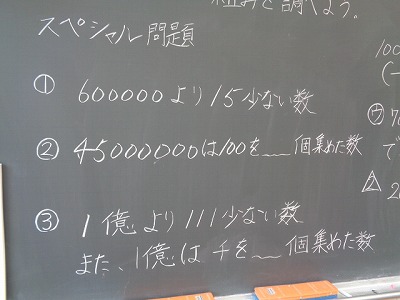 組みを調べよう。
スペシャル問題
① 600000より15少ない数
② 45000000は100を__個集めた数
③ 1億より111少ない数
また、1億は千を__個集めた数
100
(一
ウ 70
で
2
20